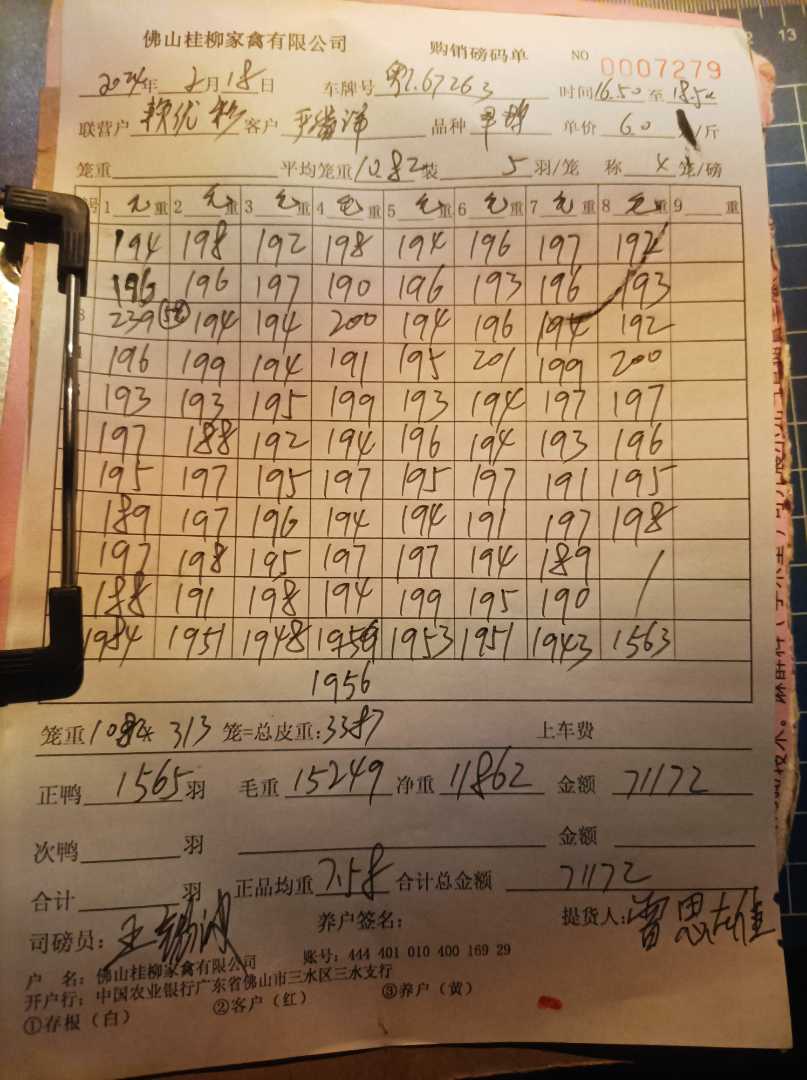 佛山桂柳家禽有限公司 购销磅码单 NO 0007279
2024年 2月18日 车牌号 粤L67263 时间16.50至18.50
联营户 客户 品种 单价 6.0 /斤
笼重 平均笼重10.82装 5 羽/笼 称 4 笼/磅
号 1 毛重 2 毛重 3 毛重 4 毛重 5 毛重 6 毛重 7 毛重 8 毛重 9 重
194 198 192 198 194 196 197 192
196 196 197 190 196 193 196 193
3 239 (5笼) 194 194 200 194 196 194 192
196 199 194 191 195 201 199 200
193 193 195 199 193 194 197 197
197 188 192 194 196 194 193 196
195 197 195 197 195 197 191 195
189 197 196 194 194 191 197 198
197 198 195 197 197 194 189 /
188 191 198 194 199 195 190
1984 1951 1948 1953 1951 1943 1563
1956
笼重10.82× 313 笼=总皮重:3387 上车费
正鸭 1565 羽 毛重 15249 净重 11862 金额 71172
次鸭 羽 金额
合计 羽 正品均重 7.58 合计总金额 71172
司磅员: 王锡 养户签名: 提货人: 雷思雄
户 名: 佛山桂柳家禽有限公司 账号: 444 401 010 400 169 29
开户行: 中国农业银行广东省佛山市三水区三水支行
①存根（白） ②客户（红） ③养户（黄）